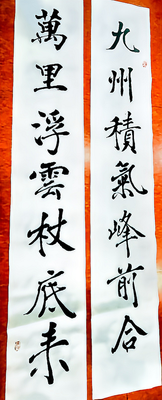 九州積氣峰前合
萬里浮雲杖底來